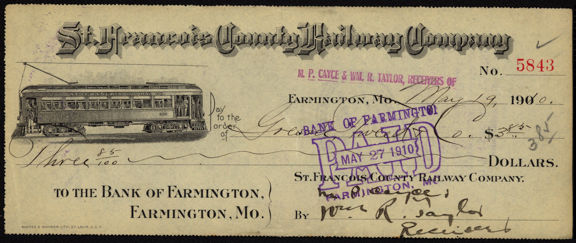 St. Francois County Railway Company
No. 5843
M. P. CAYCE & WM. R. TAYLOR, RECEIVERS OF
FARMINGTON, MO. May 19, 1910.
Pay to the order of Co. $3.85
385
Three 85/100 DOLLARS.
BANK OF FARMINGTON
PAID
MAY 27 1910
FARMINGTON, MO.
ST. FRANCOIS COUNTY RAILWAY COMPANY.
TO THE BANK OF FARMINGTON,
FARMINGTON, MO.
By Wm R. Taylor
Receivers